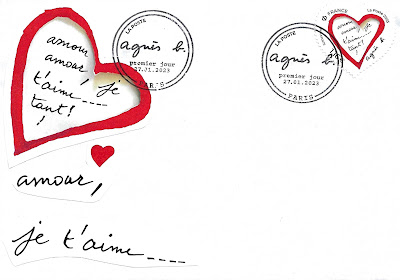 amour
amour je
t'aime____
tant!
!
amour,
je t'aime____
LA POSTE
agnès b.
premier jour
27.01.2023
PARIS
LA POSTE
agnès b.
premier jour
27.01.2023
PARIS
FRANCE
LA POSTE
amour
amour je
t'aime____
tant!
agnès b.